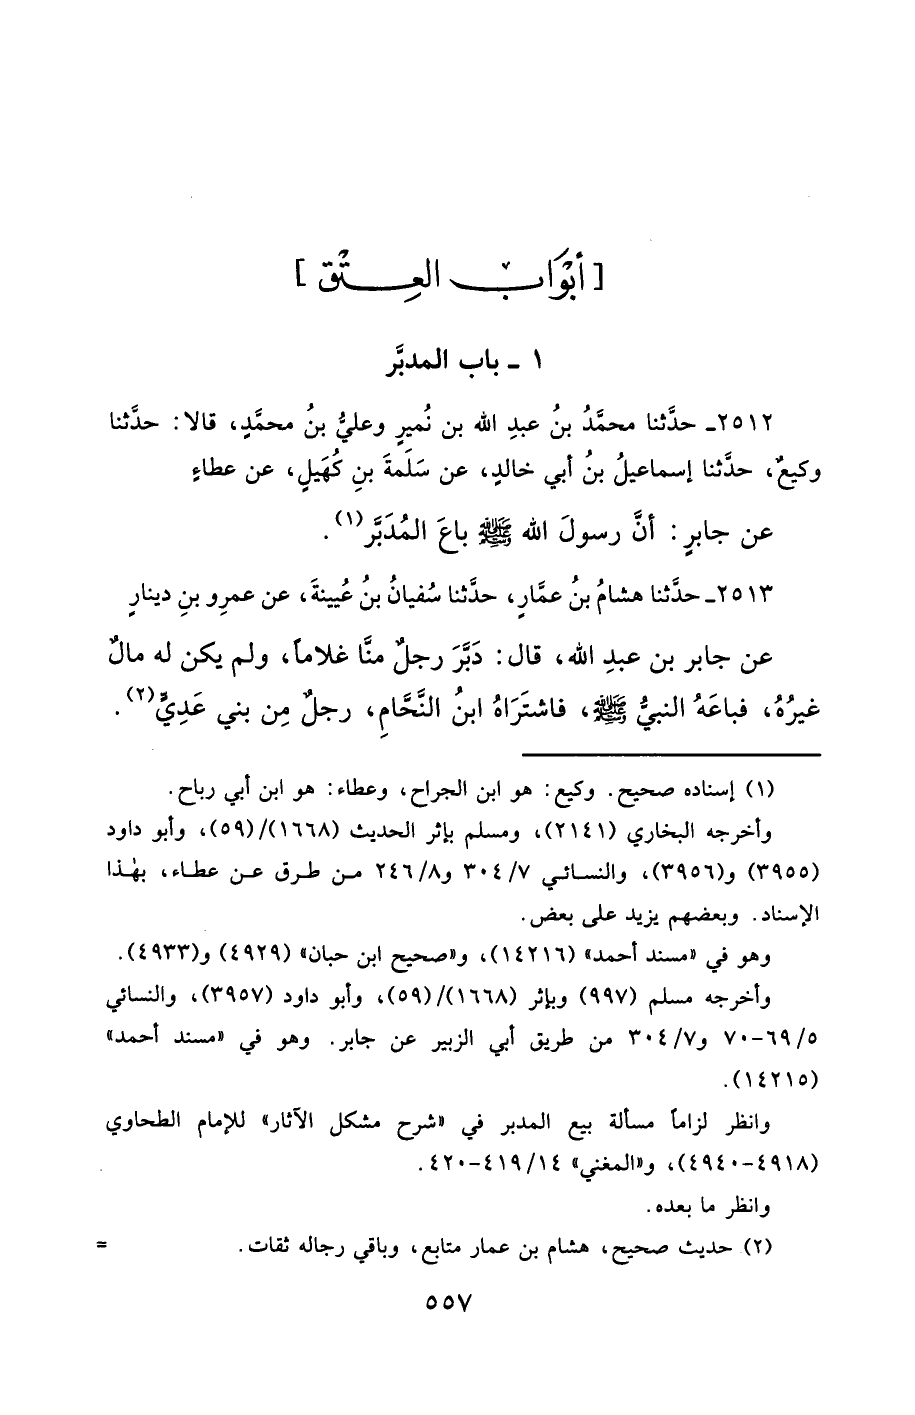 [ أبْوَابُ العِـتْق ]
١ ـ باب المدبَّر
٢٥١٢ـ حدَّثنا محمَّدُ بنُ عبدِ الله بن نُميرٍ وعليُّ بنُ محمَّدٍ، قالا: حدَّثنا
وكيعٌ، حدَّثنا إسماعيلُ بنُ أبي خالدٍ، عن سَلَمةَ بنِ كُهَيلٍ، عن عطاءٍ
عن جابرٍ: أنَّ رسولَ الله ﷺ باعَ المُدَبَّر(١).
٢٥١٣ـ حدَّثنا هشامُ بنُ عمَّارٍ، حدَّثنا سُفيانُ بنُ عُيينةَ، عن عمرِو بنِ دينارٍ
عن جابر بن عبدِ الله، قال: دَبَّرَ رجلٌ منَّا غلاماً، ولم يكن له مالٌ
غيرُهُ، فباعَهُ النبيُّ ﷺ، فاشتَرَاهُ ابنُ النَّحَّامِ، رجلٌ مِن بني عَدِيٍّ(٢).
(١) إسناده صحيح. وكيع: هو ابن الجراح، وعطاء: هو ابن أبي رباح.
وأخرجه البخاري (٢١٤١)، ومسلم بإثر الحديث (١٦٦٨)/(٥٩)، وأبو داود
(٣٩٥٥) و(٣٩٥٦)، والنسائي ٣٠٤/٧ و٢٤٦/٨ من طرق عن عطاء، بهٰذا
الإسناد. وبعضهم يزيد على بعض.
وهو في «مسند أحمد» (١٤٢١٦)، و«صحيح ابن حبان» (٤٩٢٩) و(٤٩٣٣).
وأخرجه مسلم (٩٩٧) وبإثر (١٦٦٨)/(٥٩)، وأبو داود (٣٩٥٧)، والنسائي
٦٩/٥-٧٠ و٣٠٤/٧ من طريق أبي الزبير عن جابر. وهو في «مسند أحمد»
(١٤٢١٥).
وانظر لزاماً مسألة بيع المدبر في «شرح مشكل الآثار» للإمام الطحاوي
(٤٩١٨-٤٩٤٠)، و«المغني» ٤١٩/١٤-٤٢٠.
وانظر ما بعده.
(٢) حديث صحيح، هشام بن عمار متابع، وباقي رجاله ثقات. =
٥٥٧